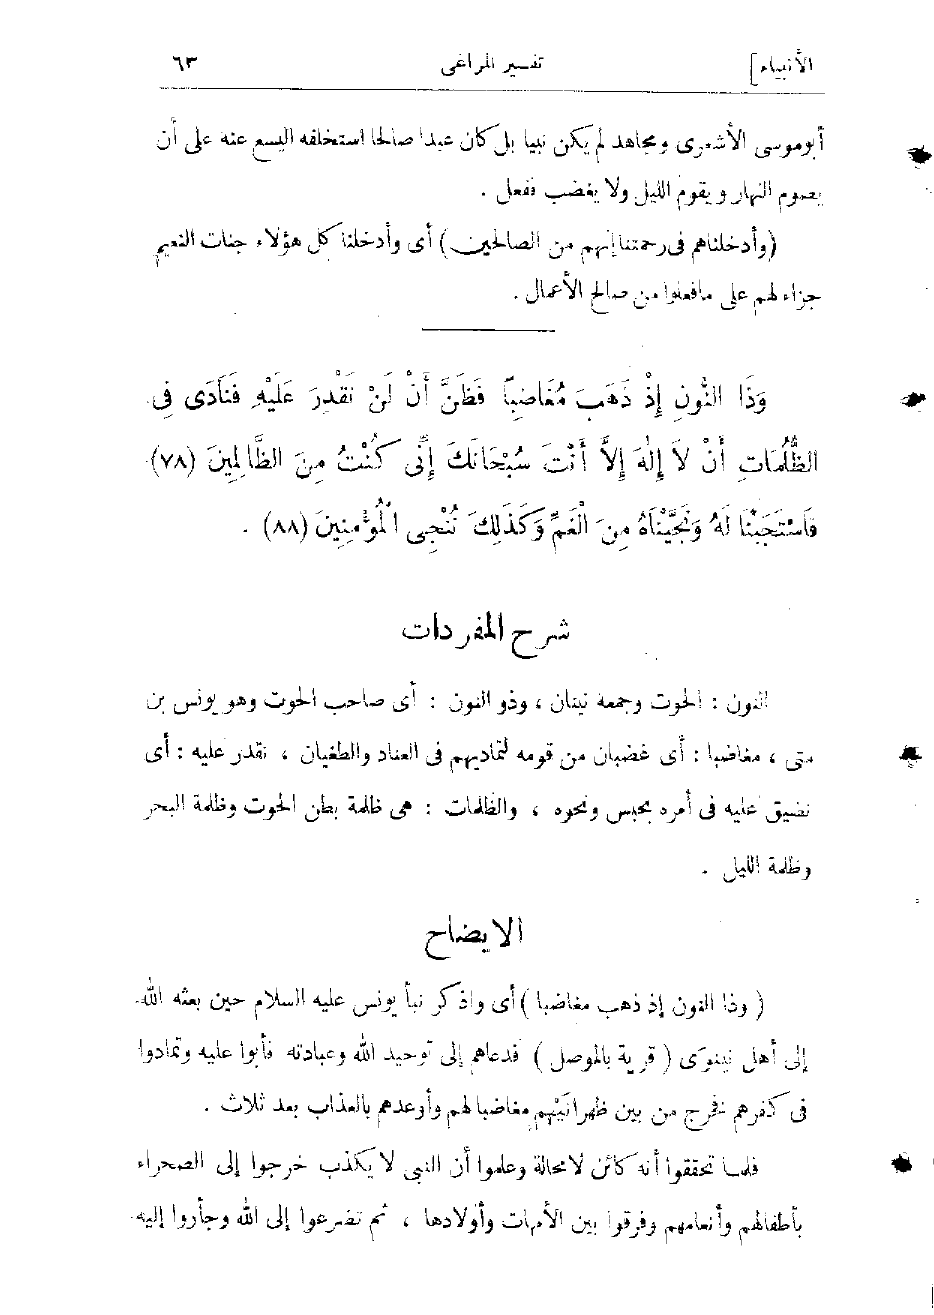 الأنبياء] تفسير المراغى ٦٣
أبو موسى الأشعرى ومجاهد لم يكن نبيا بل كان عبدا صالحا استخلفه اليسع عنه على أن
يصوم النهار ويقوم الليل ولا يغضب ففعل .
(وأدخلناهم فى رحمتنا إنهم من الصالحين) أى وأدخلنا كل هؤلاء جنات النعيم
جزاء لهم على ما فعلوا من صالح الأعمال .
وَذَا النُّونِ إِذْ ذَهَبَ مُغَاضِبًا فَظَنَّ أَنْ لَنْ نَقْدِرَ عَلَيْهِ فَنَادَى فِى
الظُّلُمَاتِ أَنْ لَا إِلٰهَ إِلَّا أَنْتَ سُبْحَانَكَ إِنِّى كُنْتُ مِنَ الظَّالِمِينَ (٧٨)
فَاسْتَجَبْنَا لَهُ وَنَجَّيْنَاهُ مِنَ الْغَمِّ وَكَذَلِكَ نُنْجِى الْمُؤْمِنِينَ (٨٨) .
شرح المفردات
النون : الحوت وجمعه نينان ، وذو النون : أى صاحب الحوت وهو يونس بن
متى ، مغاضبا : أى غضبان من قومه لتماديهم فى العناد والطغيان ، نقدر عليه : أى
نضيق عليه فى أمره بحبس ونحوه ، والظلمات : هى ظلمة بطن الحوت وظلمة البحر
وظلمة الليل .
الايضاح
( وذا النون إذ ذهب مغاضبا ) أى واذكر نبأ يونس عليه السلام حين بعثه الله
إلى أهل نينوَى ( قرية بالموصل ) فدعاهم إلى توحيد الله وعبادته فأبوا عليه وتمادوا
فى كفرهم فخرج من بين ظهرانَيْهم مغاضبا لهم وأوعدهم بالعذاب بعد ثلاث .
فلما تحققوا أنه كائن لا محالة وعلموا أن النبى لا يكذب خرجوا إلى الصحراء
بأطفالهم وأنعامهم وفرقوا بين الأمهات وأولادها ، ثم تضرعوا إلى الله وجأروا إليه